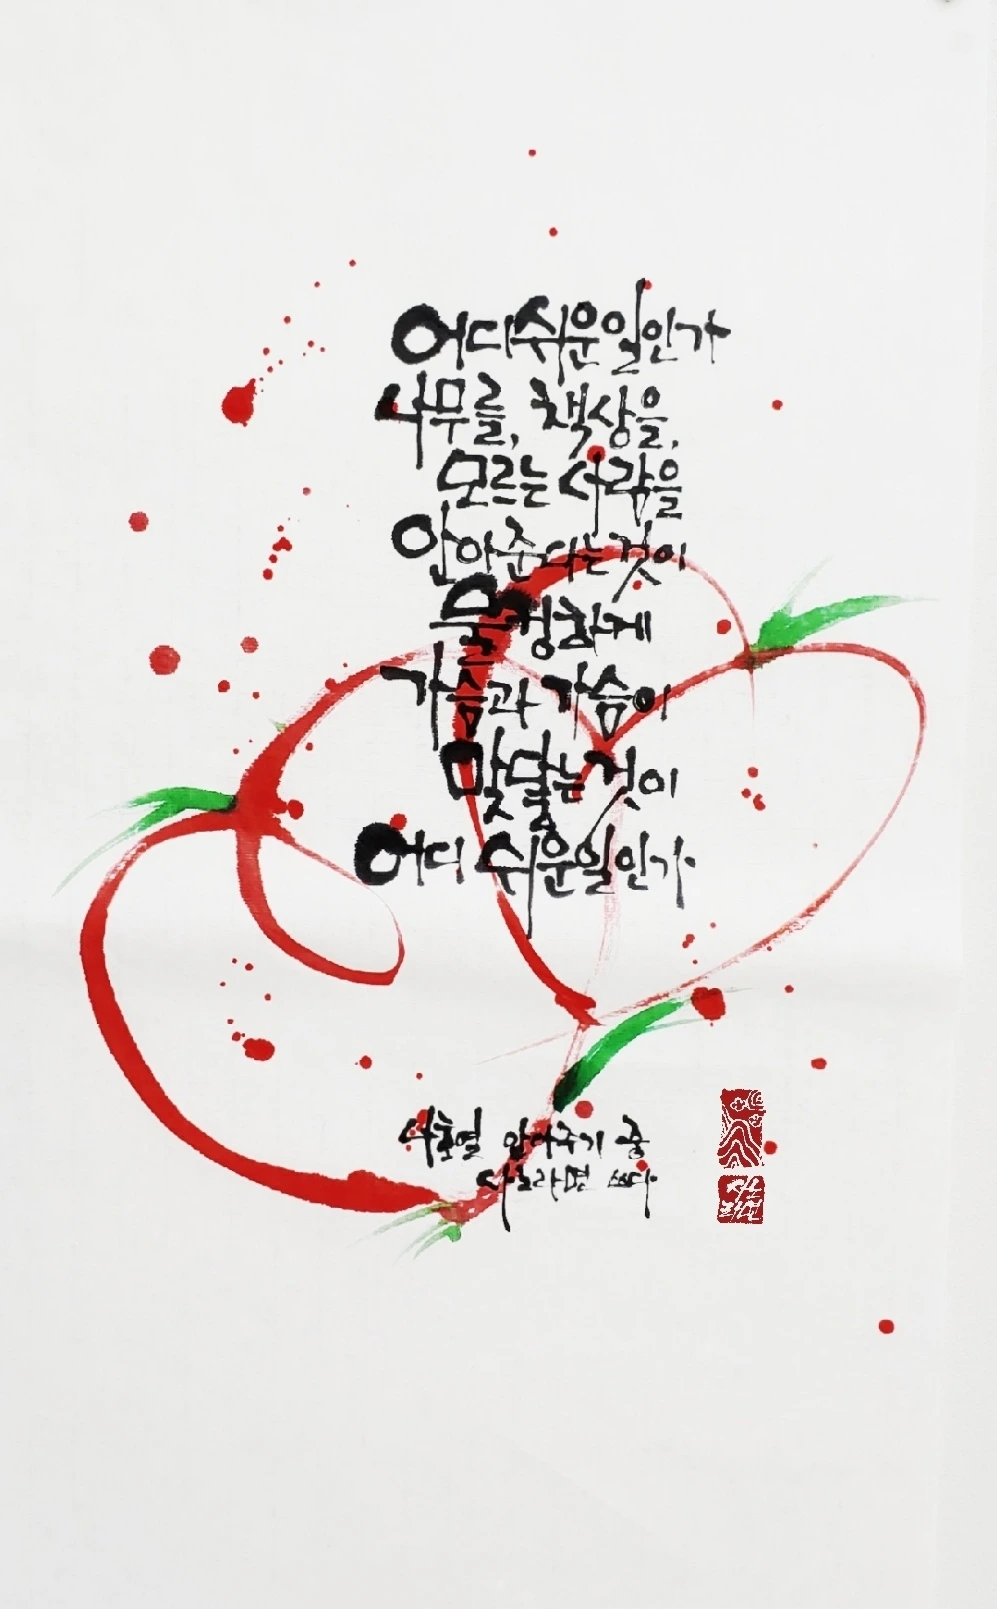 어디 쉬운 일인가
나무를, 책상을,
모르는 사람을
안아준다는 것이
물컹하게
가슴과 가슴이
맞닿는 것이
어디 쉬운 일인가
안아주기 중
쓰다